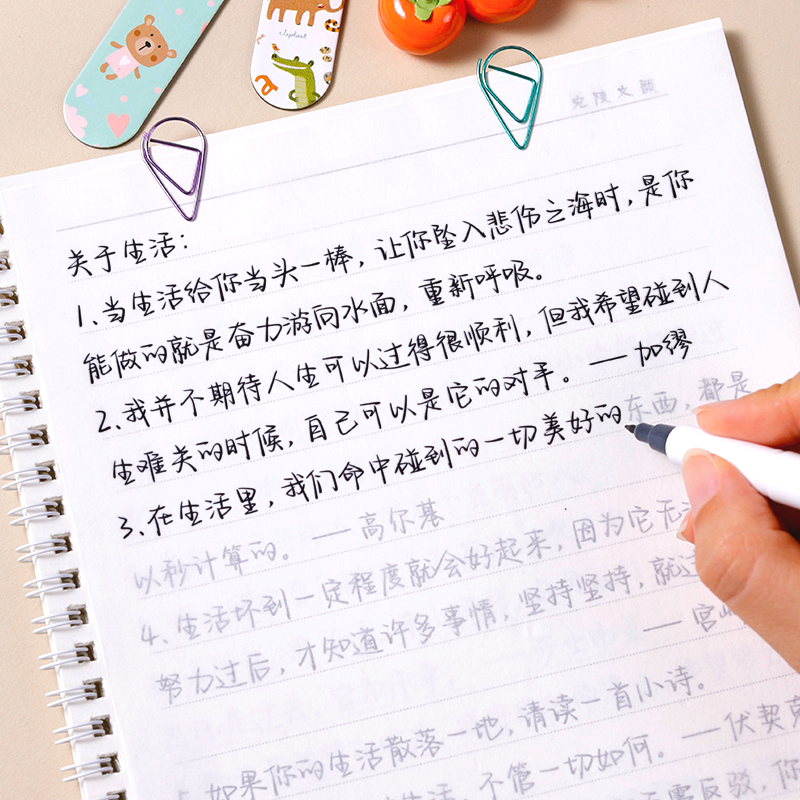 elephant
关于生活：
1、当生活给你当头一棒，让你坠入悲伤之海时，是你
能做的就是奋力游向水面，重新呼吸。
2、我并不期待人生可以过得很顺利，但我希望碰到人
生难关的时候，自己可以是它的对手。——加缪
3、在生活里，我们命中碰到的一切美好的东西，都是
以秒计算的。——高尔基
4、生活坏到一定程度就会好起来，因为它无
努力过后，才知道许多事情，坚持坚持，就过
——宫
5、如果你的生活散落一地，请读一首小诗。
生活，不管一切如何。——伏契克
反驳，你